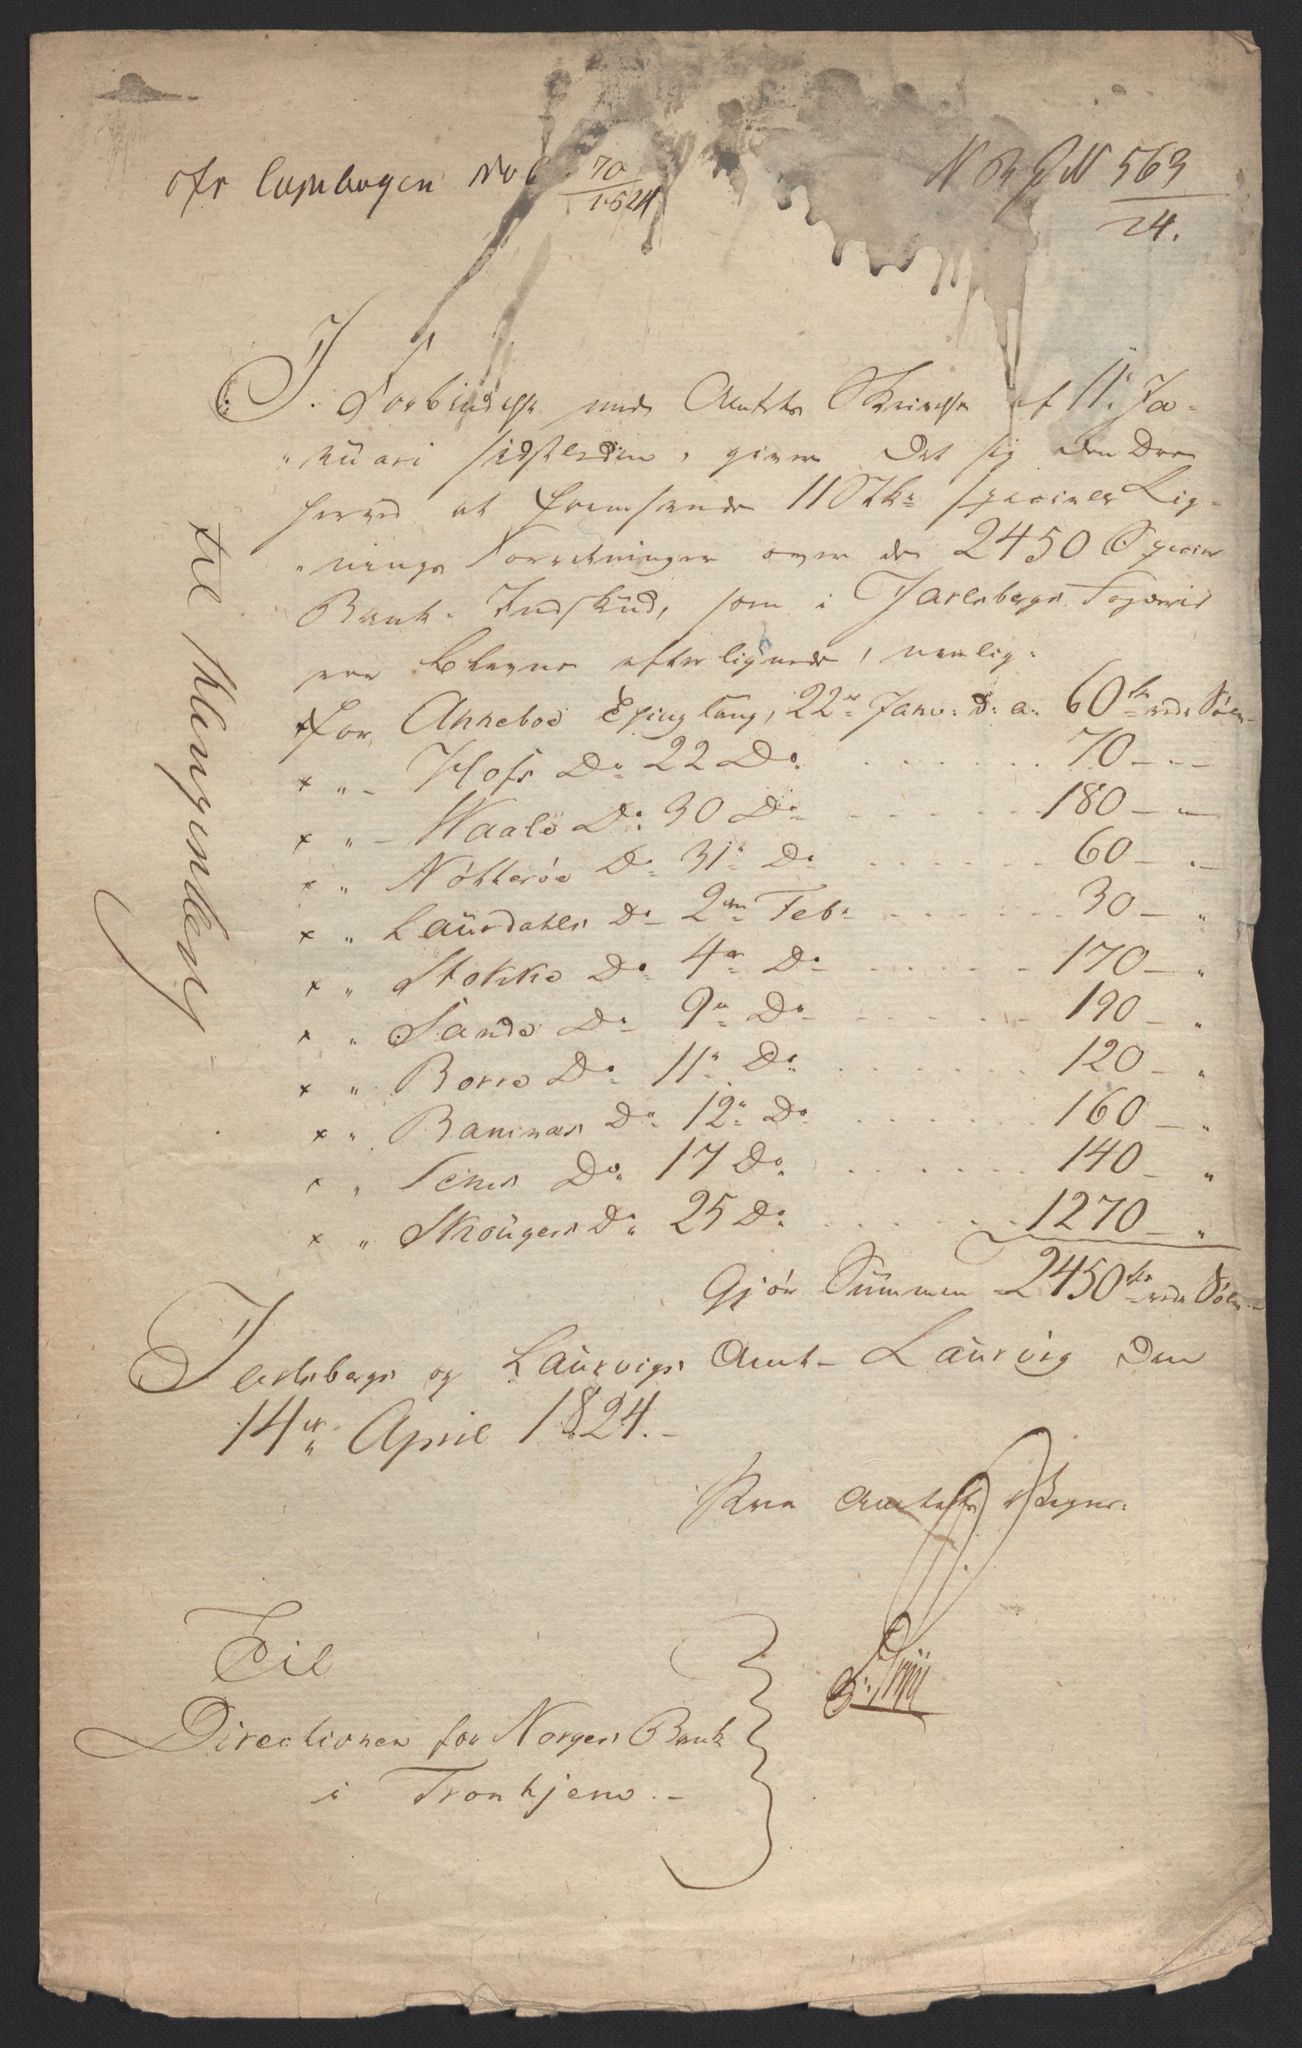 cfr Copibogen No 70/1824
N B J N 563/24.
I Forbindelse med Amtets Skrivelse af 11te Ja-
nuari sidstleden, giver det sig den Ære
herved at fremsende 11 Stkr specielle Lig-
nings Forretninger over de 2450 Specier
Bank-Indskud, som i Jarlsbergs Fogderie
ere blevne efterlignede, nemlig:
for Anneboe Thinglaug, 22de Janv: d: a: 60 Sp rede Sølv
" Hofs Do 22 Do 70 -
" Waale Do 30 Do 180 - "
" Nøtterøe Do 31te Do 60 - "
" Laurdahls Do 2den Feb: 30 - "
" Stokke Do 4de Do 170 - "
" Sande Do 9de Do 190 - "
" Borre Do 11te Do 120 - "
" Ramnæs Do 12te Do 160 - "
" Sems Do 17 Do 140 - "
" Skougers Do 25 Do 1270 - "
Gjør Summen 2450 Sp rede Sølv
Jarlsbergs og Laurvigs Amt - Laurvig den
14de April 1824. -
Paa Amtets Vegne.
Til
Directionen for Norges Bank
i Tronhjem. -
til Klingenberg